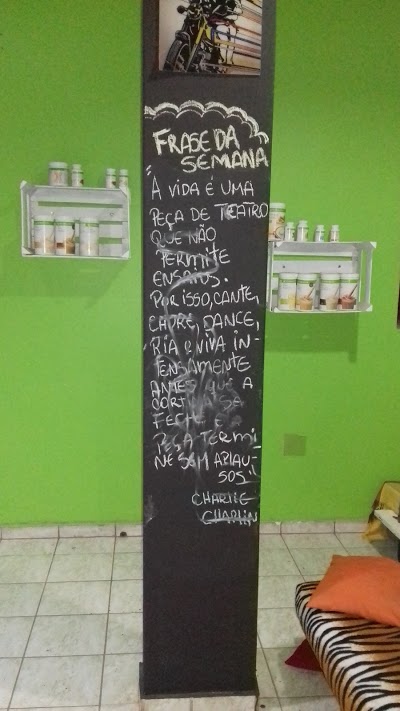 FRASE DA
SEMANA
"A VIDA É UMA
PEÇA DE TEATRO
QUE NÃO
PERMITE
ENSAIOS.
POR ISSO, CANTE,
CHORE, DANCE,
RIA E VIVA IN-
TENSAMENTE
ANTES QUE A
CORTINA SE
FECHE E A
PEÇA TERMI-
NE SEM APLAU-
SOS"
CHARLIE
CHAPLIN